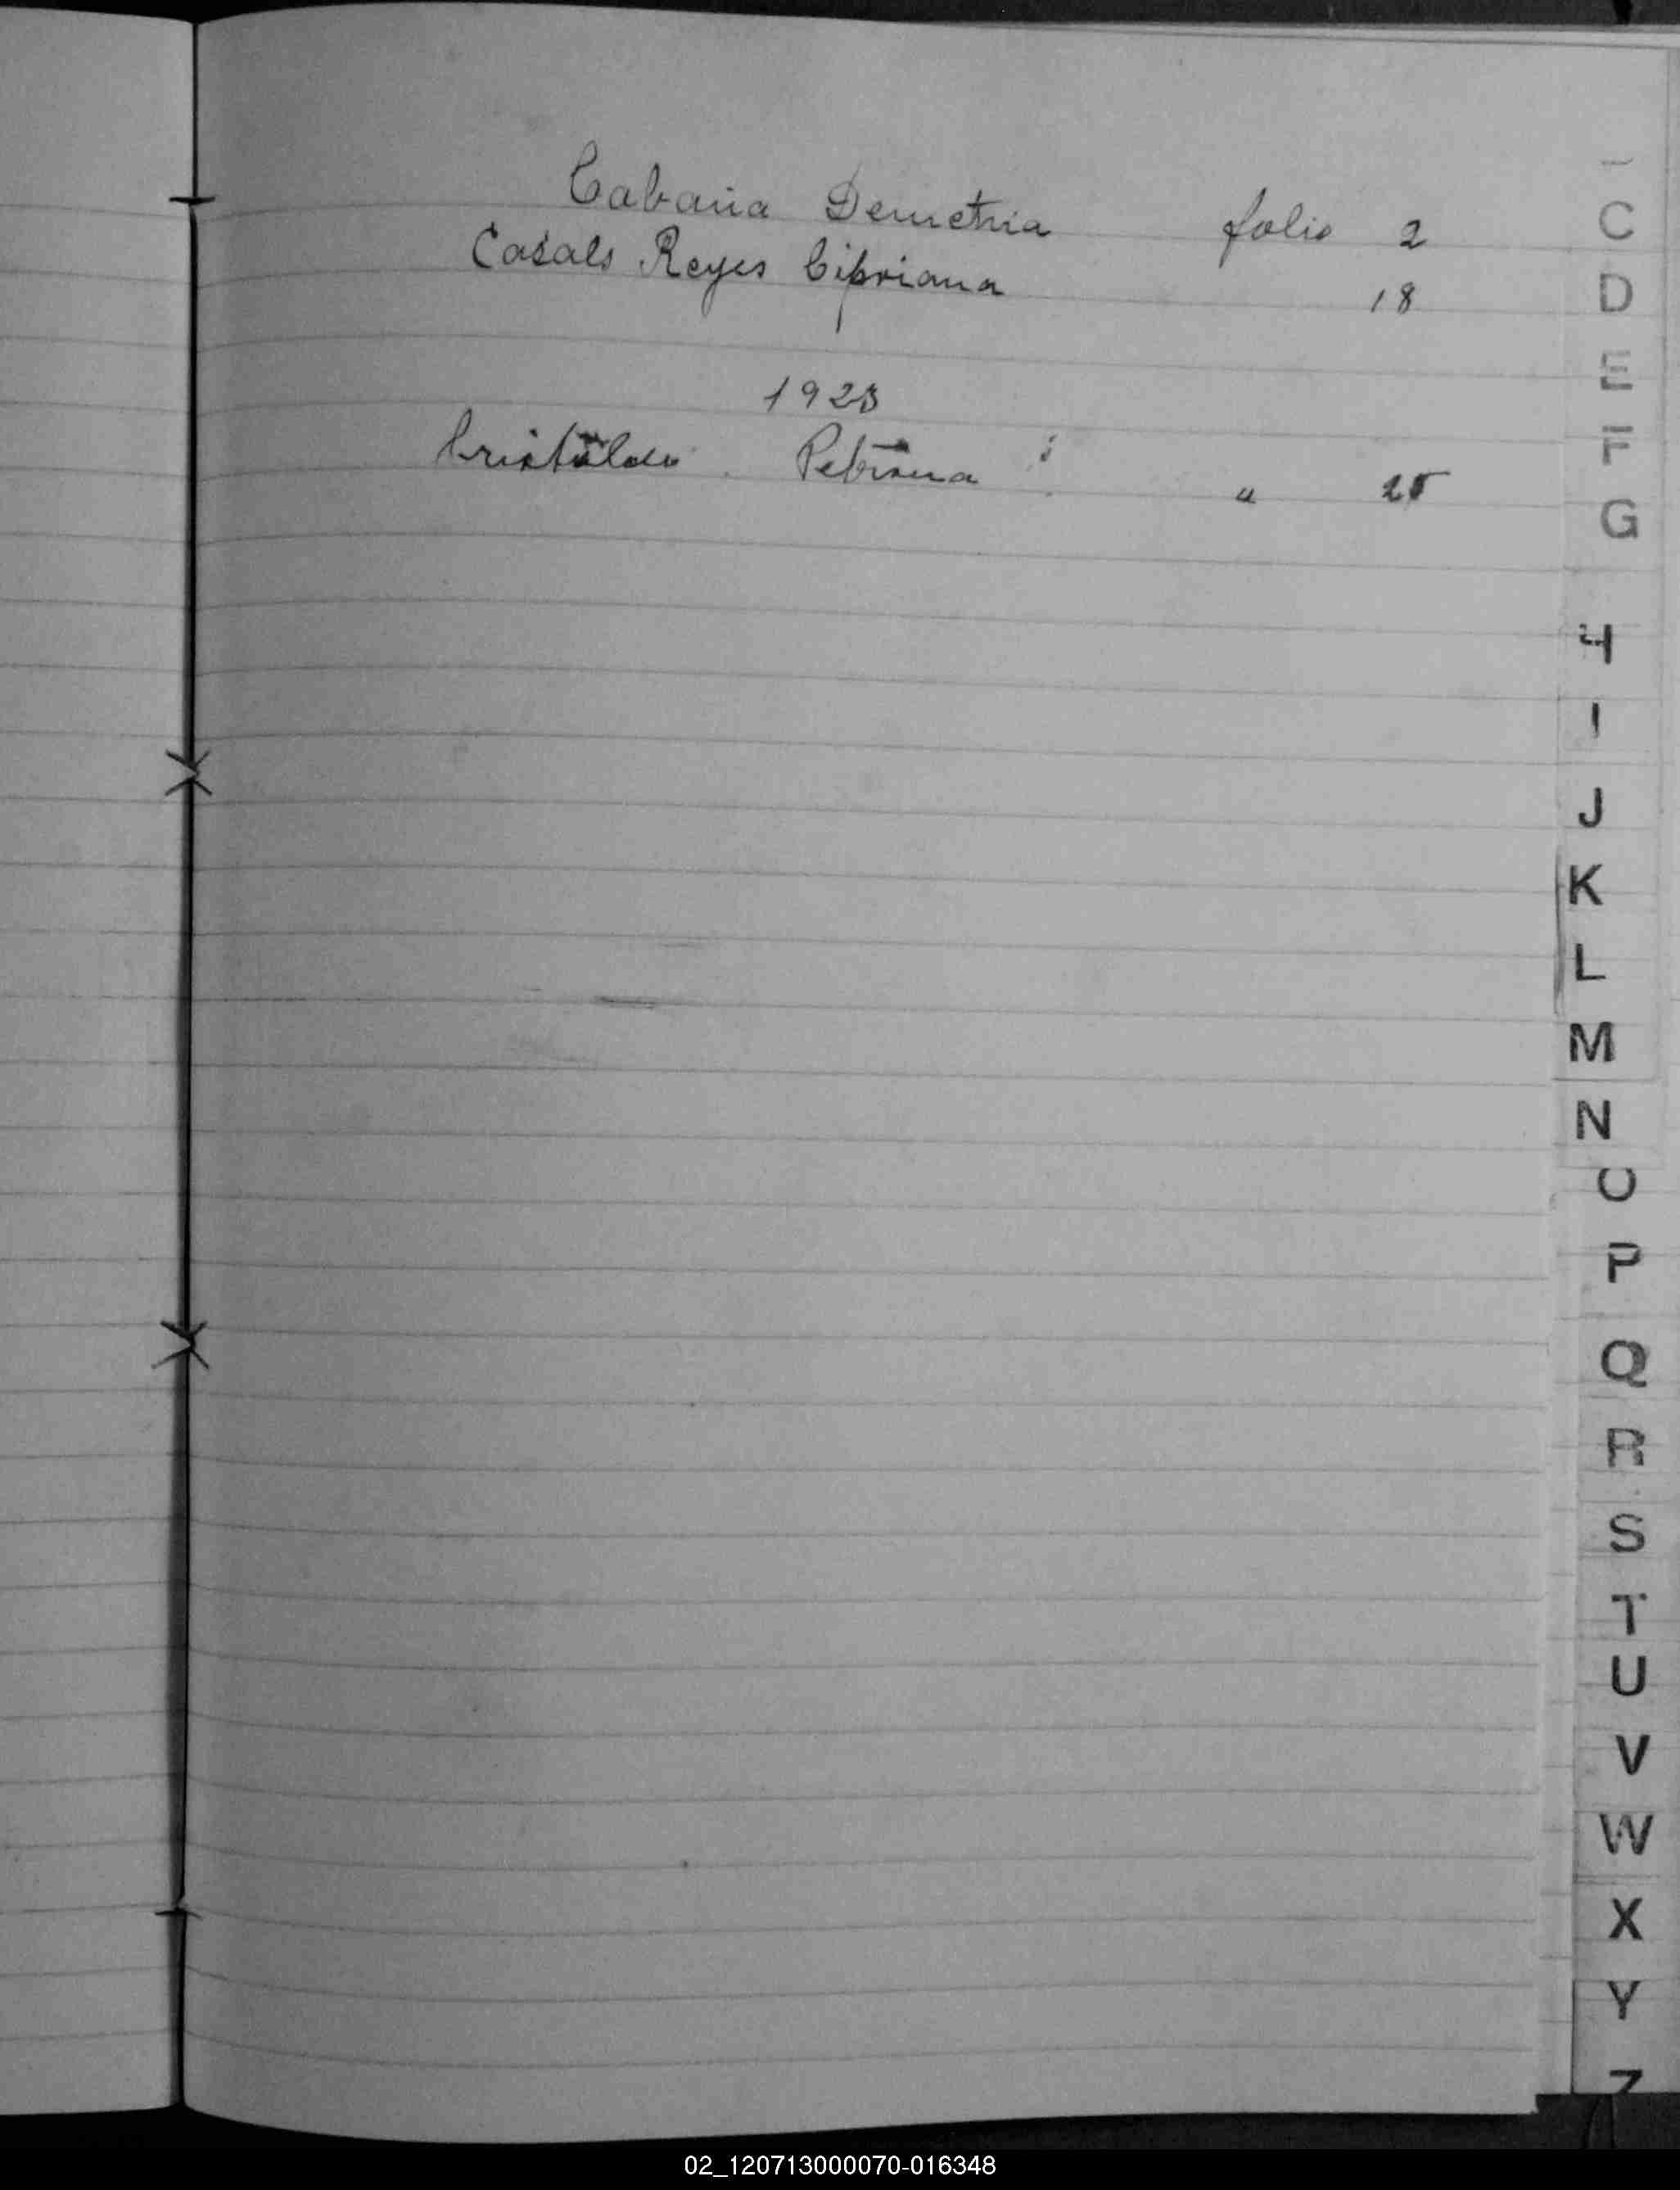 Cabaña Demetria folio 2
Casals Reyes Cipriana 18
1923
Cristaldo Petrona " 25
C
D
E
F
G
H
I
J
K
L
M
N
O
P
Q
R
S
T
U
V
W
X
Y
Z
02_120713000070-016348